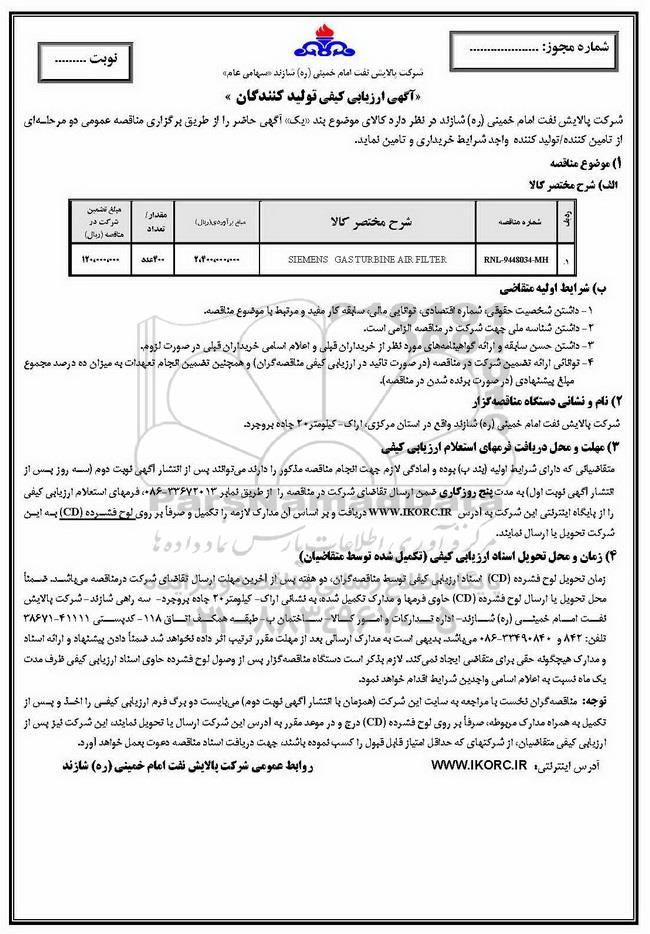 شماره مجوز: ....................
نوبت .........
شرکت پالایش نفت امام خمینی (ره) شازند «سهامی عام»
«آگهی ارزیابی کیفی تولید کنندگان »
شرکت پالایش نفت امام خمینی (ره) شازند در نظر دارد کالای موضوع بند «یک» آگهی حاضر را از طریق برگزاری مناقصه عمومی دو مرحله‌ای
از تامین کننده/تولید کننده واجد شرایط خریداری و تامین نماید.
۱) موضوع مناقصه
الف) شرح مختصر کالا
ردیف | شماره مناقصه | شرح مختصر کالا | مبلغ برآوردی(ریال) | مقدار/ تعداد | مبلغ تضمین شرکت در مناقصه (ریال)
۱. | RNL-9448034-MH | SIEMENS GAS TURBINE AIR FILTER | ۲،۴۰۰،۰۰۰،۰۰۰ | ۴۰۰عدد | ۱۲۰،۰۰۰،۰۰۰
ب) شرایط اولیه متقاضی
۱- داشتن شخصیت حقوقی، شماره اقتصادی، توانایی مالی، سابقه کار مفید و مرتبط با موضوع مناقصه.
۲- داشتن شناسه ملی جهت شرکت در مناقصه الزامی است.
۳- داشتن حسن سابقه و ارائه گواهینامه‌های مورد نظر از خریداران قبلی و اعلام اسامی خریداران قبلی در صورت لزوم.
۴- توانائی ارائه تضمین شرکت در مناقصه (در صورت تائید در ارزیابی کیفی مناقصه‌گران) و همچنین تضمین انجام تعهدات به میزان ده درصد مجموع
مبلغ پیشنهادی (در صورت برنده شدن در مناقصه).
۲) نام و نشانی دستگاه مناقصه‌گزار
شرکت پالایش نفت امام خمینی (ره) شازند واقع در استان مرکزی، اراک- کیلومتر۲۰ جاده بروجرد.
۳) مهلت و محل دریافت فرمهای استعلام ارزیابی کیفی
متقاضیانی که دارای شرایط اولیه (بند ب) بوده و آمادگی لازم جهت انجام مناقصه مذکور را دارند می‌توانند پس از انتشار آگهی نوبت دوم (سه روز پس از
انتشار آگهی نوبت اول) به مدت پنج روزکاری ضمن ارسال تقاضای شرکت در مناقصه را از طریق نمابر ۳۳۶۷۲۰۱۳-۰۸۶، فرمهای استعلام ارزیابی کیفی
را از پایگاه اینترنتی این شرکت به آدرس WWW.IKORC.IR دریافت و بر اساس آن مدارک لازمه را تکمیل و صرفاً بر روی لوح فشرده (CD) به این
شرکت تحویل یا ارسال نمایند.
۴) زمان و محل تحویل اسناد ارزیابی کیفی (تکمیل شده توسط متقاضیان)
زمان تحویل لوح فشرده (CD) اسناد ارزیابی کیفی توسط مناقصه‌گران، دو هفته پس از آخرین مهلت ارسال تقاضای شرکت درمناقصه می‌باشد. ضمناً
محل تحویل یا ارسال لوح فشرده (CD) حاوی فرمها و مدارک تکمیل شده، به نشانی اراک- کیلومتر۲۰ جاده بروجرد- سه راهی شازند- شرکت پالایش
نفت امام خمینی (ره) شازند- اداره تدارکات و امور کالا- ساختمان ب- طبقه همکف اتاق ۱۱۸- کدپستی ۴۱۱۱۱-۳۸۶۷۱
تلفن: ۸۴۲ و ۳۳۴۹۰۸۴۰-۰۸۶ می‌باشد. بدیهی است به مدارک ارسالی بعد از مهلت مقرر ترتیب اثر داده نخواهد شد ضمناً دادن پیشنهاد و ارائه اسناد
و مدارک هیچگونه حقی برای متقاضی ایجاد نمی‌کند. لازم بذکر است دستگاه مناقصه‌گزار پس از وصول لوح فشرده حاوی اسناد ارزیابی کیفی ظرف مدت
یک ماه نسبت به اعلام اسامی واجدین شرایط اقدام خواهد نمود.
توجه: مناقصه‌گران نخست با مراجعه به سایت این شرکت (همزمان با انتشار آگهی نوبت دوم) می‌بایست دو برگ فرم ارزیابی کیفی را اخذ و پس از
تکمیل به همراه مدارک مربوطه، صرفاً بر روی لوح فشرده (CD) درج و در موعد مقرر به آدرس این شرکت ارسال یا تحویل نمایند، این شرکت نیز پس از
ارزیابی کیفی متقاضیان، از شرکتهای که حداقل امتیاز قابل قبول را کسب نموده باشند، جهت دریافت اسناد مناقصه دعوت بعمل خواهد آورد.
آدرس اینترنتی: WWW.IKORC.IR
روابط عمومی شرکت پالایش نفت امام خمینی (ره) شازند